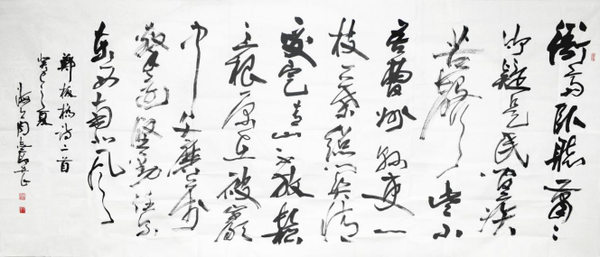 衙斋卧聽蕭〻
竹疑是民間疾
苦聲些小
吾曹州縣吏一
枝一葉總关情
咬定青山不放鬆
立根原在破巖
中千磨萬
擊還堅勁任尔
东西南北风
鄭板橋诗二首
癸巳之夏
海上周